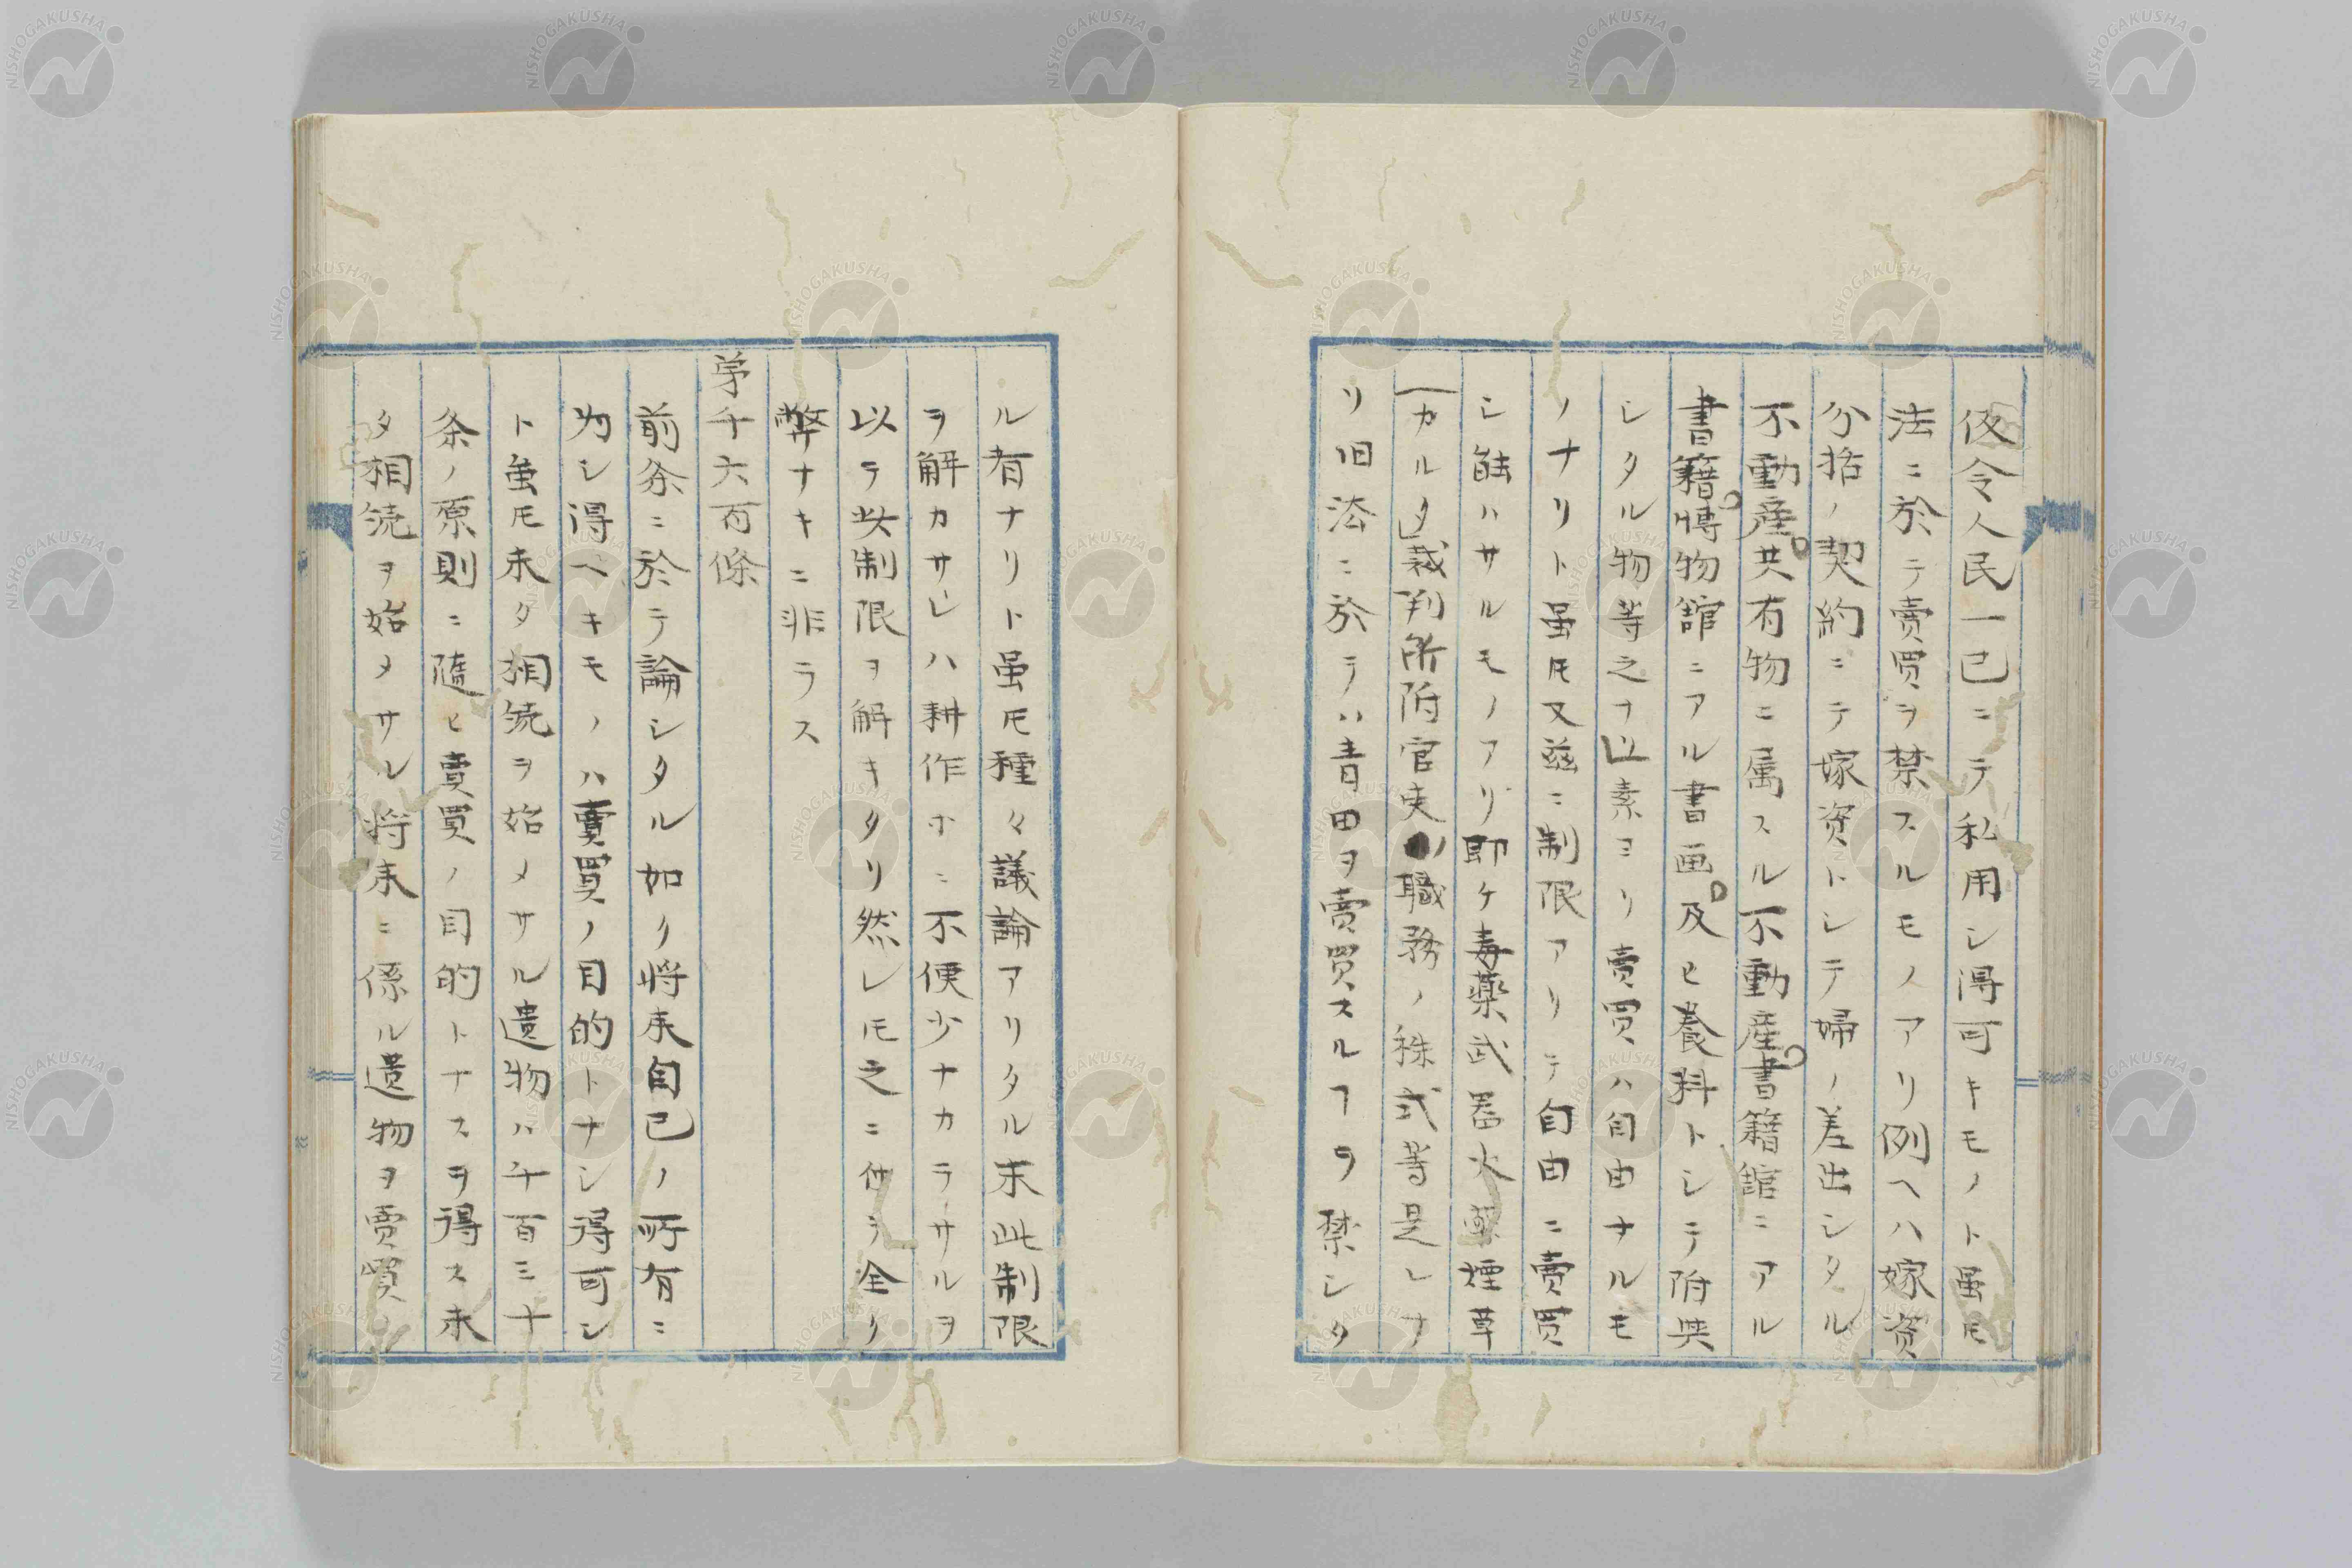 仮令人民一己ニテ私用シ得可キモノト虽𪜈
法ニ於テ賣買ヲ禁スルモノアリ例ヘハ嫁資
分括ノ契約ニテ嫁資トシテ婦ノ差出シタル
不動産共有物ニ属スル不動産書籍館ニアル
書籍博物館ニアル書画及ヒ養料トシテ附與
シタル物等之ナリ素ヨリ賣買ハ自由ナルモ
ノナリト虽𪜈又茲ニ制限アリテ自由ニ賣買
シ能ハサルモノアリ即ケ毒藥武噐火藥煙草
カルタ裁判所附官吏ノ職務ノ株式等是レナ
リ旧法ニ於テハ青田ヲ賣買スルヿヲ禁シタ
ル有ナリト虽𪜈種々議論アリタル末此制限
ヲ解カサレハ耕作ホニ不便少ナカラサルヲ
以テ此制限ヲ解キタリ然レ𪜈之ニ付テ全ク
弊ナキニ非ラス
苐千六百條
前条ニ於テ論シタル如ク将来自己ノ所有ニ
為シ得ヘキモノハ賣買ノ目的トナシ得可シ
ト虽𪜈未タ相続ヲ始メサル遺物ハ千百三十
条ノ原則ニ隨ヒ賣買ノ目的トナスヲ得ス未
タ相続ヲ始メサル将来ニ係ル遺物ヲ賣買
NISHOGAKUSHA